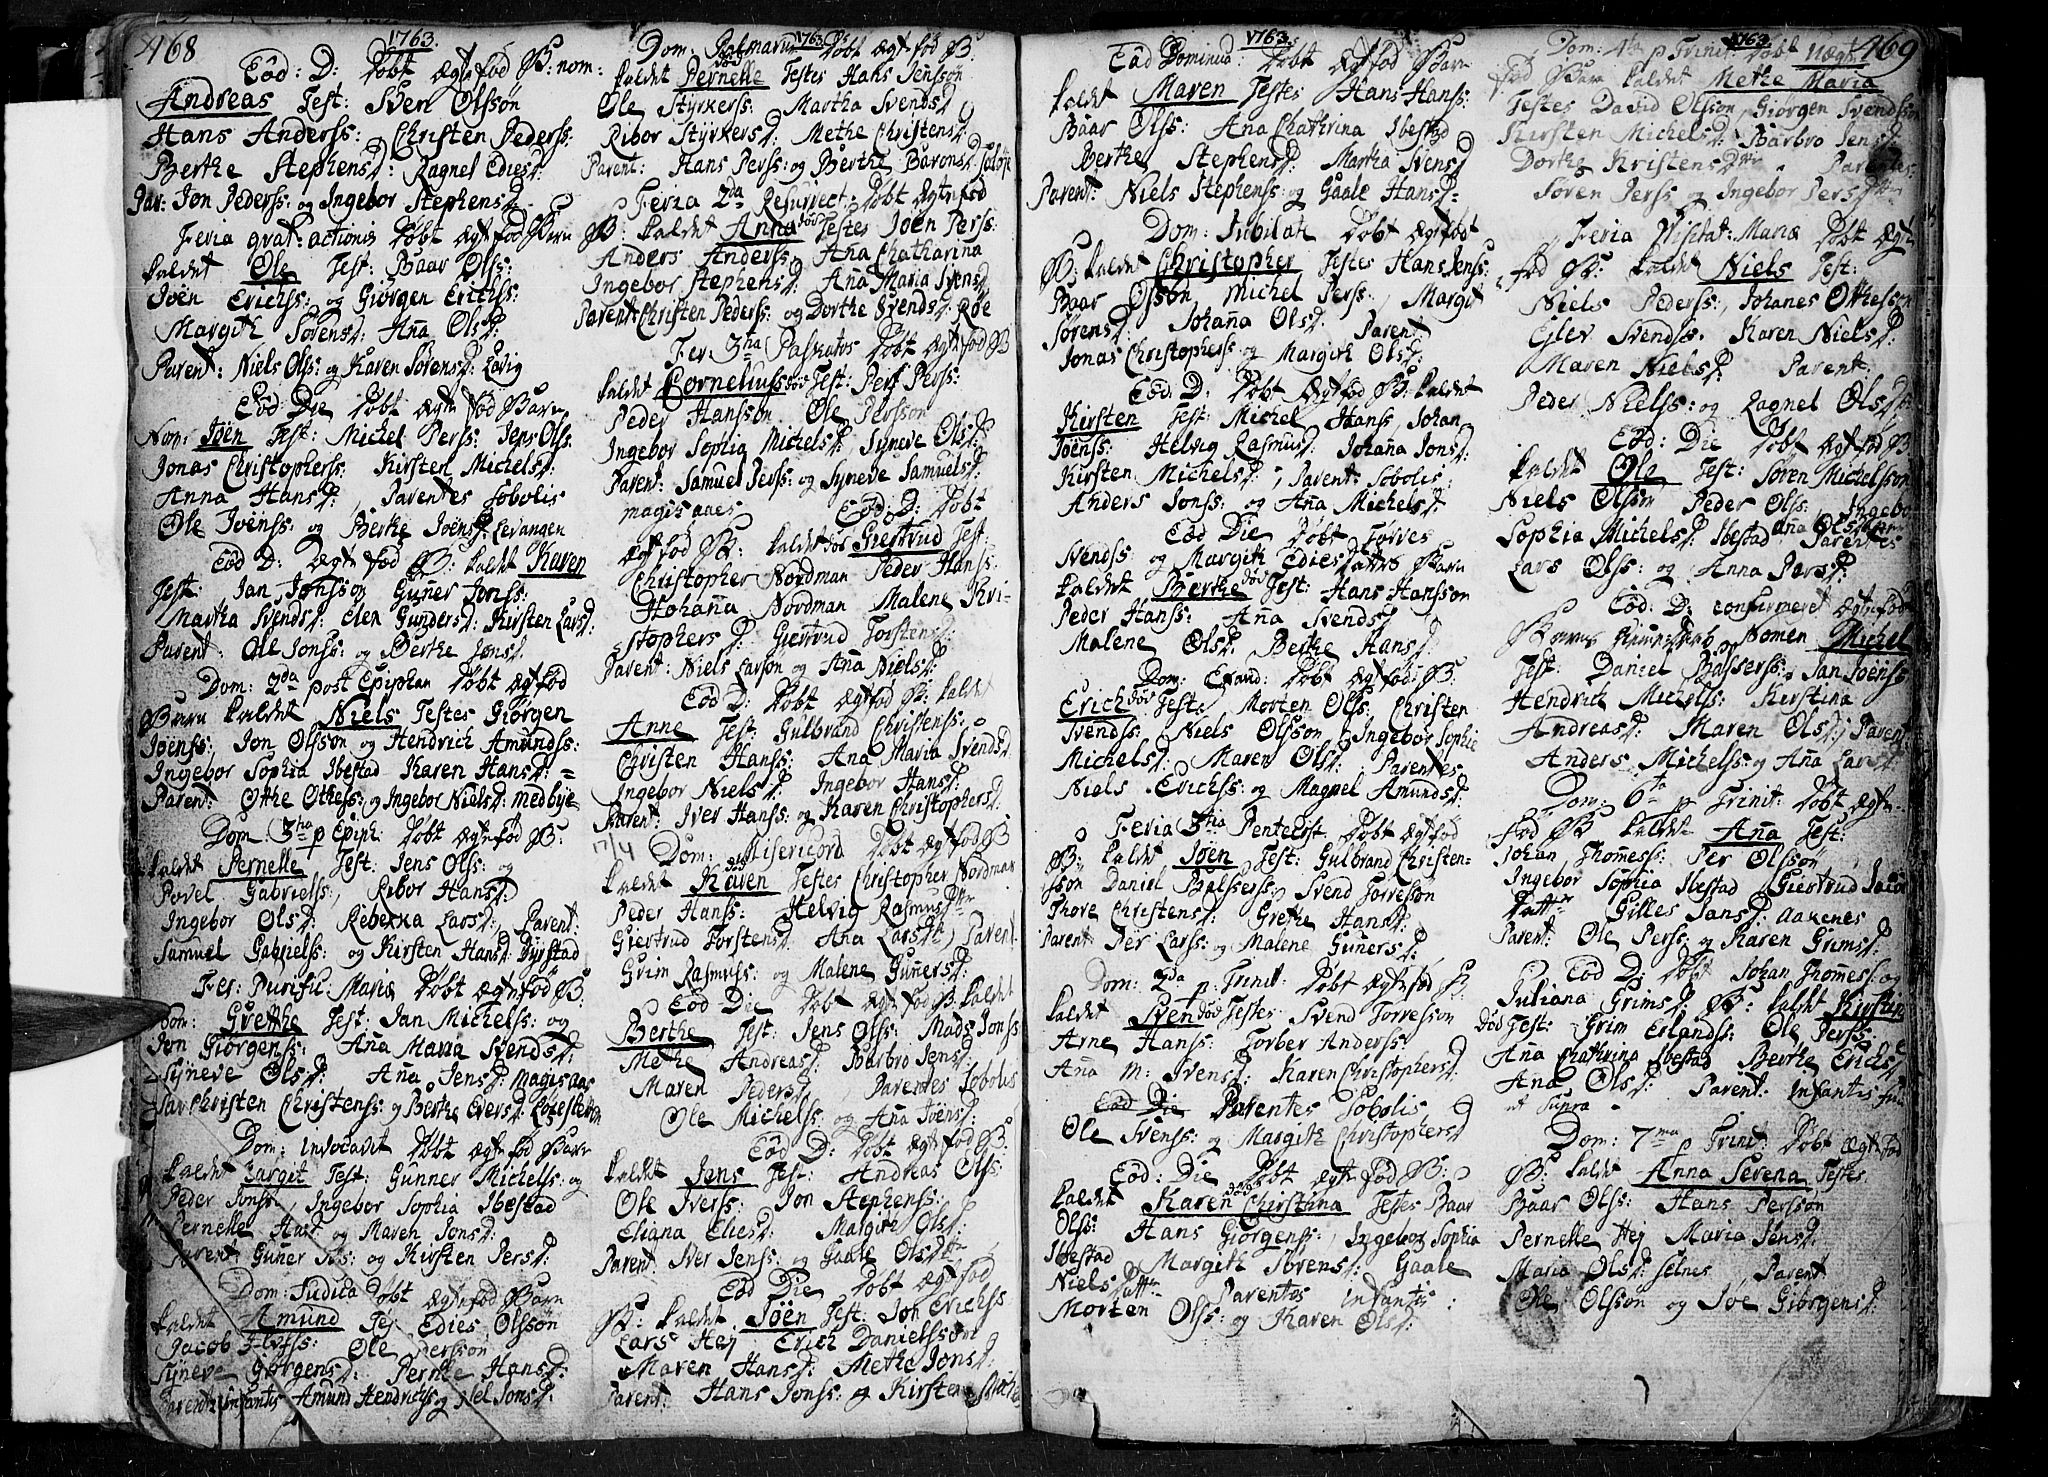 168
1763.
Eod: D: Døbt Ægte fød B: nom:
Andreas Test: Sven Olssøn
Hans Anderss: Christen Pederss:
Berthe Stephensd: Ragnel Ediesd:
Par: Jon Pederss: og Ingebor Stephensd
Feria grat: actiones Døbt Ægte fød Barn
kaldet Ole Test: Baar Olss:
Joen Erichss: og Giørgen Erichss:
Margith Sørensd: Aña Olsd
Parent: Niels Olss: og Karen Sørensd: Løvig
Eod: Die Døbt Ægte fød Barn
Nom: Joen Test: Michel Perss: Jens Olss
Jonas Christopherss: Kirsten Michelsd:
Anna Hansd: Parentes Sobolis
Ole Joenss: og Berthe Joensd: Levangen
Eod D: Ægte fød B: kaldet Karen
Test: Jan Jonss og Guñer Jonss:
Martha Svendsd: Elen Gundersd: Kirsten Larsd:
Parent: Ole Jonss: og Berthe Jonsd
Dom: 2da post Epiphan Døbt Ægtefød
Barn kaldet Niels Testes Giørgen
Joenss: Jon Olsson og Hendrich Amundss:
Ingebor Sophia Ibestad Karen Hansd: =
Parent: Othe Othess: og Ingebor Nielsd: Medbye
Dom: 3tia p Epiph: Døbt Ægtefød B:
kaldet Pernelle Test: Jens Olss: og
Povel Gabrielss: Ribor Hansd:
Ingebor Olsd: Rebekka Larsd: Parent:
Samuel Gabrielss: og Kirsten Hansd Dyrstad
Fer: Purific: Mariæ Døbt Ægtefød B:
Nom: Grethe Test: Jan Michelss: og
Jon Giørgenss: Aña Maria Svendsd:
Syneve Olsd Aña Jensd: Magisaas
Par Christen Christenss: og Berthe Eversd:
Dom: Invocavit Døbt Ægte fød Barn
kaldet Jargit Test: Gunner Michelss: og
Peder Jonss Ingebor Sophia Ibestad
Pernelle Hans og Maren Jonsd:
Parent Guner og Kirsten Persd:
Dom: Judica Døbt Ægtefød Barn
kaldet Amund Tej Edies Olsson
Jacob Ole Persson
Syneve Giørgensd: Pernele Hansd:
Parente infantis Amund Hendrichss og Jonsd:
1763
Dom: Palmarum Døbt Ægte fød B:
kaldet Pernelle død Testes Hans Jensson
Ole Styrkerss: Martha Svendsd
Ribor Styrkersd: Methe Christensd
Parent: Hans Perss: og Berthe Baronsd
Feria 2da Resurrect: Døbt Ægte fød
B: kaldet Anna død Testes Joen Perss:
Anders Anderss: Ana Chatharina
Ingebor Stephensd: Aña Maria Svensd
Parent Christen Pederss: og Dorthe Svendsd: Roe
Fer: 3tia Paskatos Døbt Ægte fød B
kaldet Cornelius død Test: Pers Perss:
Peder Hansson Ole Persson
Ingebor Sophia Michelsd, Syneve Olsd:
Parent: Samuel Perss: og Syneve Samuelsd:
Magisaaes Eod: D: Døbt
Ægte fød B: kaldet død Giertrud Test:
Christopher Nordman Peder Hanss:
Johaña Nordman Malene Kri-
stophersd: Giertrud Torstensd
Parent: Niels Larson og Aña Nielsd:
Eod D: Døbt Ægtefød B: kaldet
Anne Test: Gulbrand Christenss:
Christen Hanss: Ana Maria Svendsd:
Ingebor Nielsd: Ingebor Hansd:
Parent: Iver Hanss: og Karen Christophersd
17/4 Dom: Misericord Døbt Ægte fød B
kaldet Karen død Testes Christopher Nordman
Peder Hanss: Helvig Rasmus Dttr
Giertrud Torstensd: Ana Larsd Parent
Grim Rasmuss: og Malene Guñersd:
Eod Die Døbt Ægte fød B: kaldet
Berthe Test: Jens Olss: Mads Jonss
Methe Andreasd: Barbro Jensd:
Maren Pedersd, Parentes Sobolis
Ole Michelss og Aña Joensd:
Eod D: Døbt Ægte fød B:
kaldet Jens Test: Andreas Olss:
Ole Iverss: Jon Stephenss:
Eliana Eliesd: Margith Olsd:
Parent: Iver Jenss: og Gaale Ols Dttr
Eod Die Døbt Ægtefød
B: kaldet Joen Test: Jon Erichss
Lars Hej Erich Danielssøn
Maren Hansd: Metha Jonsd:
Parent: Hans Jonss: og Kirsten
1763
Eod Dominica: Døbt Ægtefød Barn
kaldet Maren Testes Hans Hanss:
Baar Olss: Ana Chathrina Ibestad
Berthe Stephensd: Martha Svensd
Parent: Niels Stephenss: og Gaale Hansd:
Dom: Jubilate Døbt Ægtefødt
B: kaldet Christopher Testes Hans Jenss:
Baar Olsson Michel Perss:, Margit
Sørensd: Johaña Olsd: Parent
Jonas Christopherss og Margith Olsd:
Eod: D: Døbt Ægtefød B: kaldet
Kirsten Test: Michel Hanss Johan
Joenss: Helvig Rasmusd: Johaña Jonsd:
Kirsten Michelsd:, Parent: Sobolis:
Anders Jonss: og Aña Michelsd:
Eod Die Døbt Torres
Svendss: og Margith Ediesd: ægte Barn
kaldet Berthe død Test: Hans Hansson
Peder Hanss: Aña Svendsd
Malene Olsd: Berthe Hansd:
Dom: Exaud: Døbt Ægtefød: B:
Erich død Test: Morten Olss: Christen
Svendss: Niels Olsson Ingebor Sophie
Michelsd: Maren Olsd: Parentes
Niels Erichss: og Magnel Amundsd:
Feria 3tia Pentecost Døbt Ægtefød
B: kaldet Joen Test: Gulbrand Christen-
ssøn Daniel Balserss: Svend Torresson
Thore Christensd: Grethe Hansd:
Parent Per Larss: og Malene Guñersd:
Dom: 2da p: Trinit: Døbt Ægtefød B:
kaldet Sven død Testes Svend Torresson
Arne Hanss: Torber Anderss
Aña M: Svensd: Karen Christophersd:
Eod Die Parentes Sobolis
Ole Svenss: og Margith Christophersd
Eod: Die Døbt Ægte fød B:
kaldet Karen død Christina Testes Baar
Olss: Hans Giørgenss:, Ingebor Sophia
Ibestad Margith Sørensd: Gaale
Niels Dttr Parentes infantis:
Morten Olss: og Karen Olsd:
1763 169
Dom: 4ta p Trinit: Døbt Uægte
fød Barn kaldet Methe Maria
Testes David Olsson, Giørgen Svendsson
Kirsten Michelsd: Barbro Jensd:
Dorthe Kristens Dttr Parentes
Søren Perss og Ingebor Pers Dttr
Feria Visitat: Mariæ Døbt Ægte
fød B: kaldet Niels Test:
Niels Pederss:, Johanes Othesson
Ejlev Svendss. Karen Nielsd:
Maren Nielsd: Parent:
Peder Nielss: og Ragnel Olsd:
Eod: Die Døbt Ægte fød B
kaldet Ole Test: Søren Michelsson
Niels Olsson Peder Olss: Ingebor
Sophia Michelsd: Ibestad Aña Olsd Parentes
Lars Olss: og Anna Persd:
Eod: D: confirmeret Ægtefød
Barns Nomen Michel
Test: Daniel Balserss:, Jan Joenss
Hendrich Michelss: Kirstina
Andreasd: Maren Olsd: Parent
Anders Michelss: og Aña Larsd
Dom: 6ta p Trinit: Døbt Ægte
fød B kaldet Aña Test:
Johan Thomess: Per Olssøn
Ingebor Sophia Ibestad Giertrud Jacob
Dattr Gilles Jansd: Aakenes
Parent: Ole Perss: og Karen Grimsd:
Eod D: Døbt Johan Thomess og
Juliana Grimsd B: kaldt Kirsten
død Test: Grim Erlandss: Ole Perss:
Aña Chathrina Ibestad Berthe Erichsd
Aña Olsd: Parent: Infantis
ut supra
Dom: 7ma p Trinit: Døbt Ægtefød
B: kaldet Anna Serena Testes
Baar Olss: Hans Persson
Pernelle Hej Maria Jensd:
Maria Olsd: Selnes Parent
Ole Olsson og Joe Giørgensd: